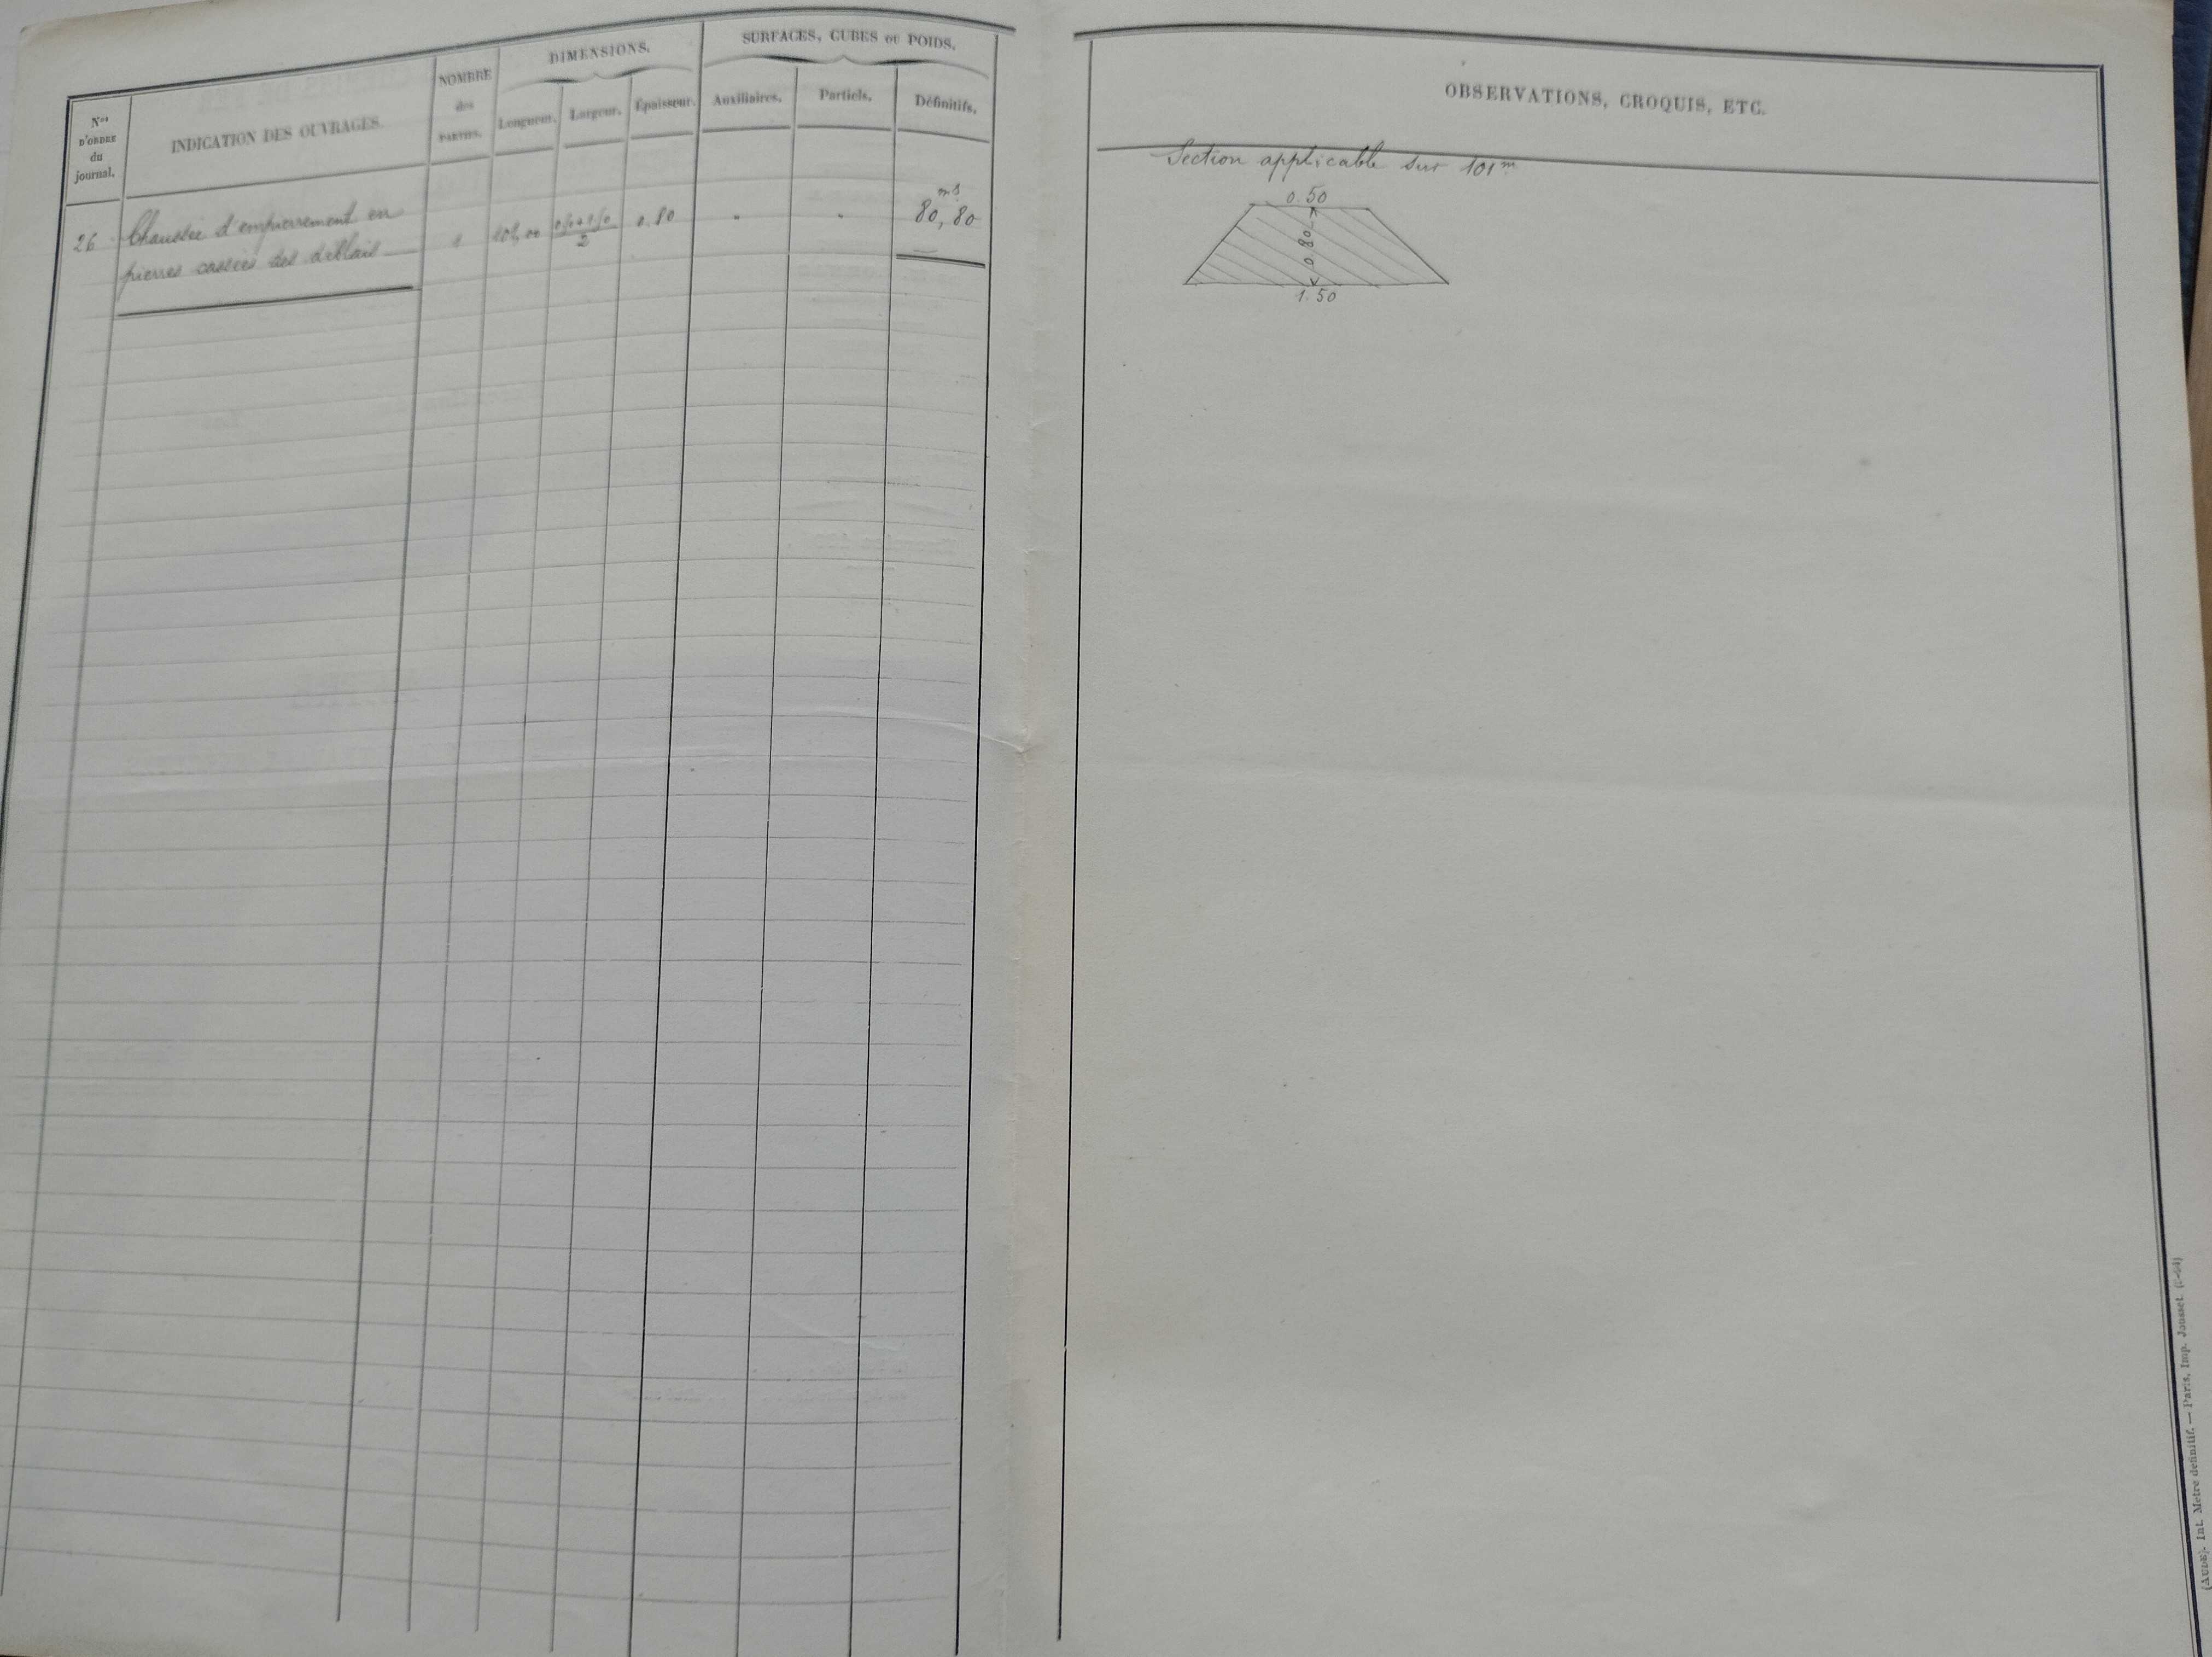 Nos
D'ORDRE
du
journal.
INDICATION DES OUVRAGES.
NOMBRE
des
PARTIES.
DIMENSIONS.
Longueur.
Largeur.
Épaisseur.
SURFACES, CUBES OU POIDS.
Auxiliaires.
Partiels.
Définitifs.
26
Chaussée d'empierrement en
pierres cassées des déblais
1
101,00
0,50+1,50
2
0.80
"
"
m3
80,80
OBSERVATIONS, CROQUIS, ETC.
Section applicable sur 101m
0.50
0.80
1.50
(AUDE). Int. Métré définitif. — Paris, Imp. Jousset.